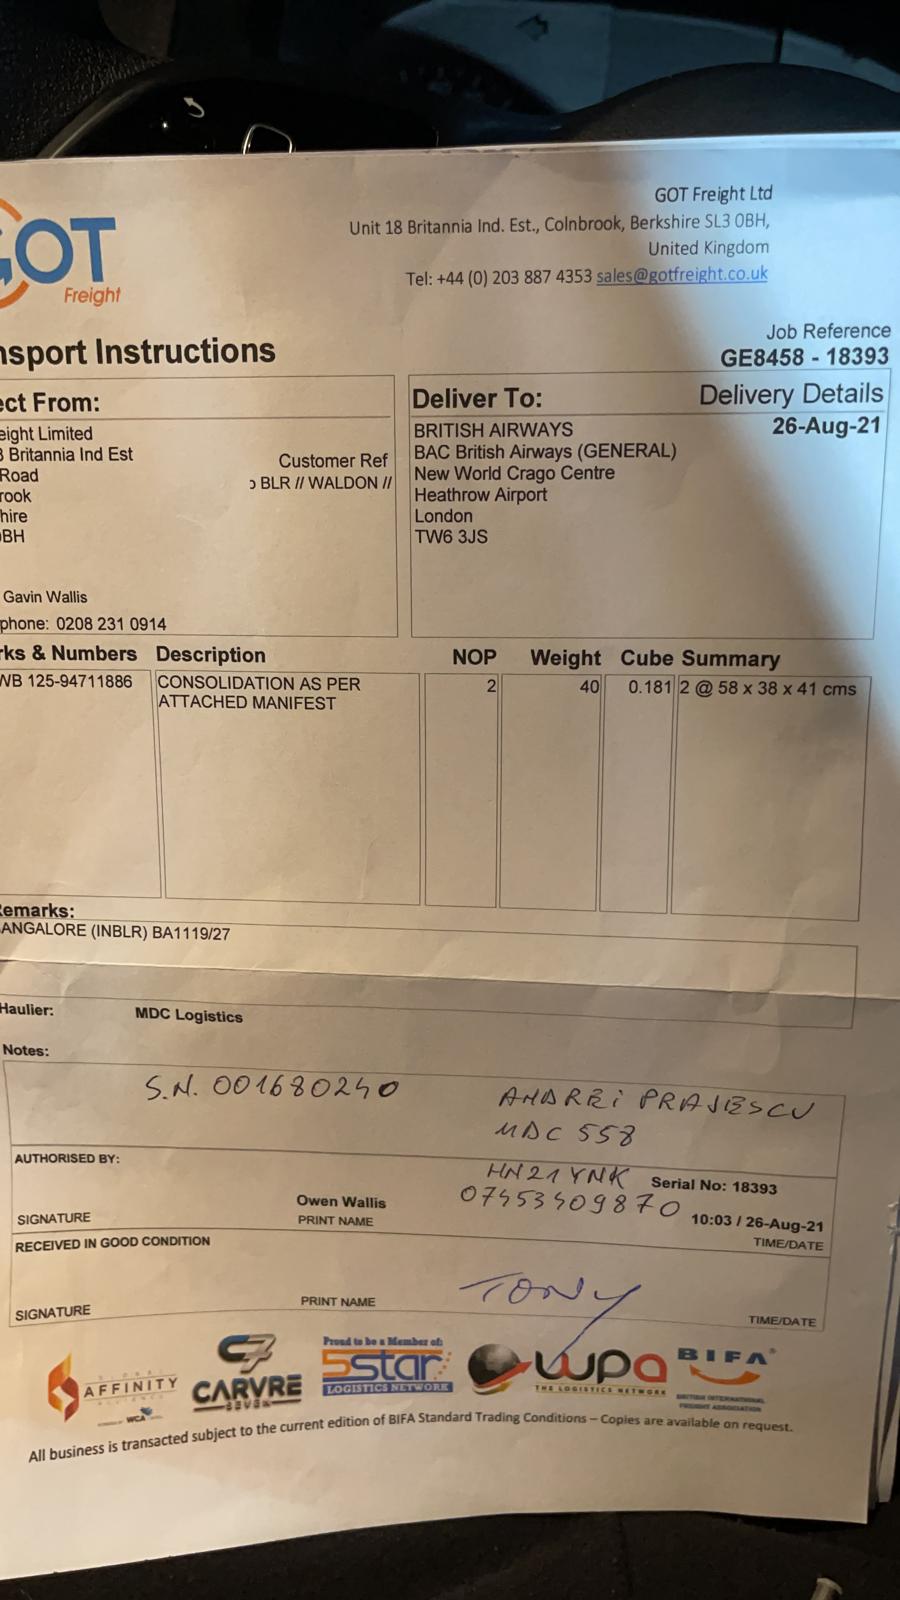 GOT
Freight
GOT Freight Ltd
Unit 18 Britannia Ind. Est., Colnbrook, Berkshire SL3 0BH,
United Kingdom
Tel: +44 (0) 203 887 4353 sales@gotfreight.co.uk
Job Reference
nsport Instructions
GE8458 - 18393
ect From:
eight Limited
8 Britannia Ind Est
Road
rook
hire
0BH
Customer Ref
o BLR // WALDON //
Gavin Wallis
phone: 0208 231 0914
Deliver To:
Delivery Details
26-Aug-21
BRITISH AIRWAYS
BAC British Airways (GENERAL)
New World Crago Centre
Heathrow Airport
London
TW6 3JS
rks & Numbers Description NOP Weight Cube Summary
WB 125-94711886 CONSOLIDATION AS PER 2 40 0.181 2 @ 58 x 38 x 41 cms
ATTACHED MANIFEST
Remarks:
ANGALORE (INBLR) BA1119/27
Haulier: MDC Logistics
Notes:
S.N. 001680240
ANDREI PRAJESCU
MDC 558
AUTHORISED BY:
HN21YNK Serial No: 18393
Owen Wallis 07453409870 10:03 / 26-Aug-21
SIGNATURE PRINT NAME TIME/DATE
RECEIVED IN GOOD CONDITION
TONY
SIGNATURE PRINT NAME TIME/DATE
AFFINITY
WCA
C7
CARVRE
SEVEN
Proud to be a Member of:
5star
LOGISTICS NETWORK
wpa
THE LOGISTICS NETWORK
BIFA
BRITISH INTERNATIONAL
FREIGHT ASSOCIATION
All business is transacted subject to the current edition of BIFA Standard Trading Conditions – Copies are available on request.